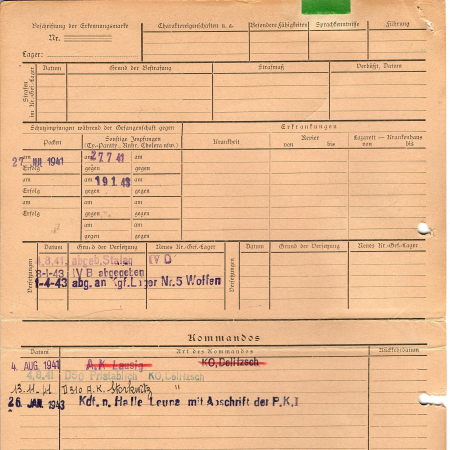 Beschriftung der Erkennungsmarke
Nr.
Lager:
Charaktereigenschaften u. a.
Besondere Fähigkeiten
Sprachkenntnisse
Führung
Strafen im Kr.-Gef.-Lager
Datum
Grund der Bestrafung
Strafmaß
Verbüßt, Datum
Schutzimpfungen während der Gefangenschaft gegen
Erkrankungen
Pocken
Sonstige Impfungen
(Ty.-Paraty., Ruhr, Cholera usw.)
Krankheit
Revier
von bis
Lazarett — Krankenhaus
von bis
27. JULI 1941
am 27 7 41
am
Erfolg
gegen
gegen
am
am 19 1. 43
am
Erfolg
gegen
gegen
am
am
am
Erfolg
gegen
gegen
am
am
gegen
gegen
Versetzungen
Datum
Grund der Versetzung
Neues Kr.-Gef.-Lager
Versetzungen
Datum
Grund der Versetzung
Neues Kr.-Gef.-Lager
4,8,41. abgeb, Stalag IV D
8-1-43 IV B abgegeben
1-4-43 abg. an Kgf. Lager Nr. 5 Wolfen
Kommandos
Datum
Art des Kommandos
Rückkehrdatum
4. AUG. 1941 A. K. KO, Delitzsch
4,8,41 KO, Delitzsch
13.11.41 D 510 A. K. "
26 JAN. 1943 Kdt. n. Halle Leuna mit Abschrift der P. K. I